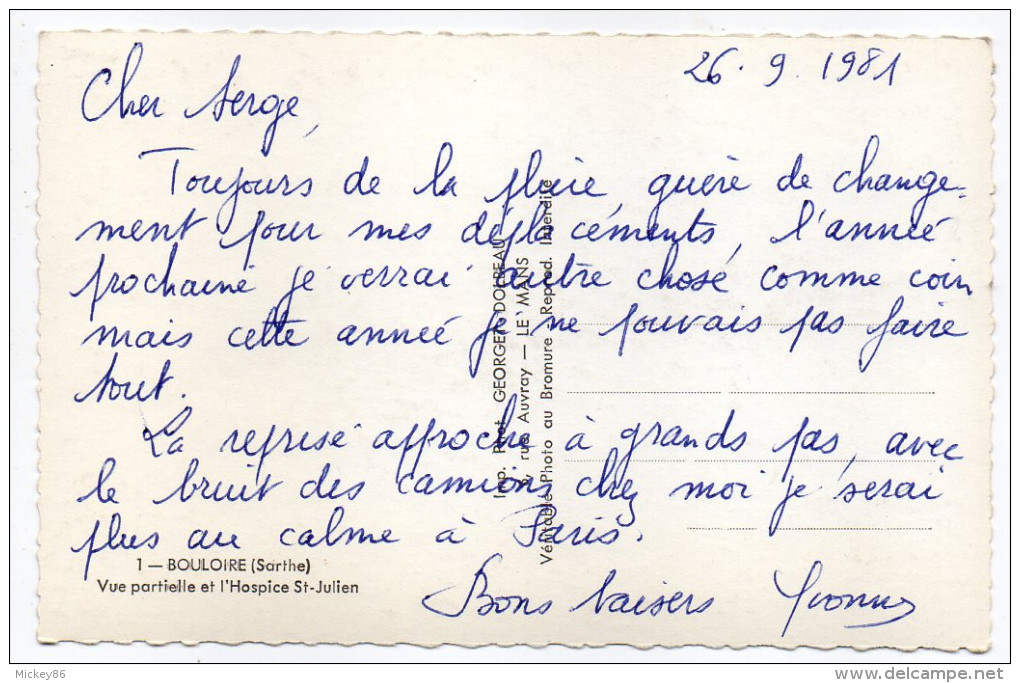 26.9.1981
Cher Serge,
Toujours de la pluie, guère de change-
ment pour mes déplacements, l'année
prochaine je verrai autre chose comme coin
mais cette année je ne pouvais pas faire
tout.
La reprise approche à grands pas, avec
le bruit des camions chez moi je serai
plus au calme à Paris.
Bons baisers Yvonne
1 — BOULOIRE (Sarthe)
Vue partielle et l'Hospice St-Julien
GEORGET DOLBEAU
rue Auvray — LE MANS
Véritable Photo au Bromure Reprod. Interdite
Mickey86
www.delcampe.net